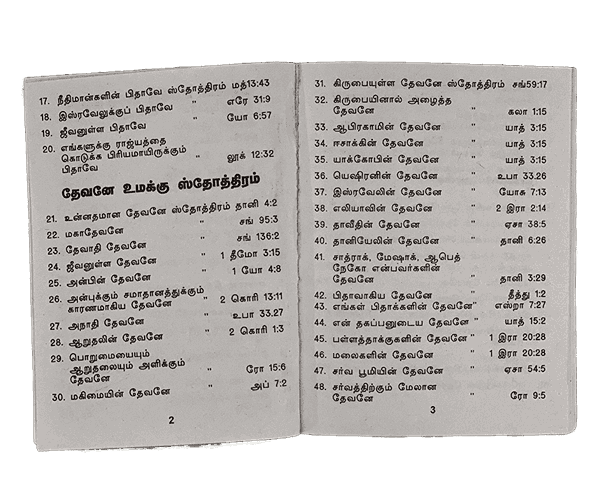 17. நீதிமான்களின் பிதாவே ஸ்தோத்திரம் மத்13:43
18. இஸ்ரவேலுக்குப் பிதாவே " எரே 31:9
19. ஜீவனுள்ள பிதாவே " யோ 6:57
20. எங்களுக்கு ராஜ்யத்தை
கொடுக்க பிரியமாயிருக்கும்
பிதாவே " லூக் 12:32
தேவனே உமக்கு ஸ்தோத்திரம்
21. உன்னதமான தேவனே ஸ்தோத்திரம் தானி 4:2
22. மகாதேவனே " சங் 95:3
23. தேவாதி தேவனே " சங் 136:2
24. ஜீவனுள்ள தேவனே " 1 தீமோ 3:15
25. அன்பின் தேவனே " 1 யோ 4:8
26. அன்புக்கும் சமாதானத்துக்கும்
காரணமாகிய தேவனே " 2 கொரி 13:11
27. அநாதி தேவனே " உபா 33.27
28. ஆறுதலின் தேவனே " 2 கொரி 1:3
29. பொறுமையையும்
ஆறுதலையும் அளிக்கும்
தேவனே " ரோ 15:6
30. மகிமையின் தேவனே " அப் 7:2
2
31. கிருபையுள்ள தேவனே ஸ்தோத்திரம் சங்59:17
32. கிருபையினால் அழைத்த
தேவனே " கலா 1:15
33. ஆபிரகாமின் தேவனே " யாத் 3:15
34. ஈசாக்கின் தேவனே " யாத் 3:15
35. யாக்கோபின் தேவனே " யாத் 3:15
36. யெஷுரனின் தேவனே " உபா 33.26
37. இஸ்ரவேலின் தேவனே " யோசு 7:13
38. எலியாவின் தேவனே " 2 இரா 2:14
39. தாவீதின் தேவனே " ஏசா 38:5
40. தானியேலின் தேவனே " தானி 6:26
41. சாத்ராக், மேஷாக், ஆபெத்
நேகோ என்பவர்களின்
தேவனே " தானி 3:29
42. பிதாவாகிய தேவனே " தீத்து 1:2
43. எங்கள் பிதாக்களின் தேவனே" எஸ்றா 7:27
44. என் தகப்பனுடைய தேவனே" யாத் 15:2
45. பள்ளத்தாக்குகளின் தேவனே" 1 இரா 20:28
46. மலைகளின் தேவனே " 1 இரா 20:28
47. சர்வ பூமியின் தேவனே " ஏசா 54:5
48. சர்வத்திற்கும் மேலான
தேவனே " ரோ 9:5
3